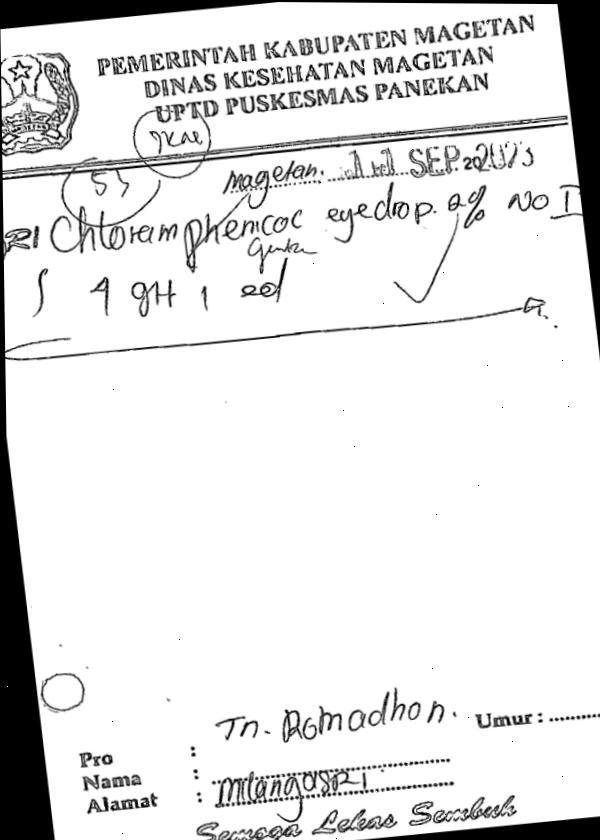 PEMERINTAH KABUPATEN MAGETAN
DINAS KESEHATAN MAGETAN
UPTD PUSKESMAS PANEKAN
53
Magetan, 11 SEP 2023
R/ Chloramphenicoc eyedrop 2% No I
Genta
ʃ 4 gtt 1 ed
Pro :
Nama : Tn. Romadhon. Umur :
Alamat : Milangasri
Semoga Lekas Sembuh